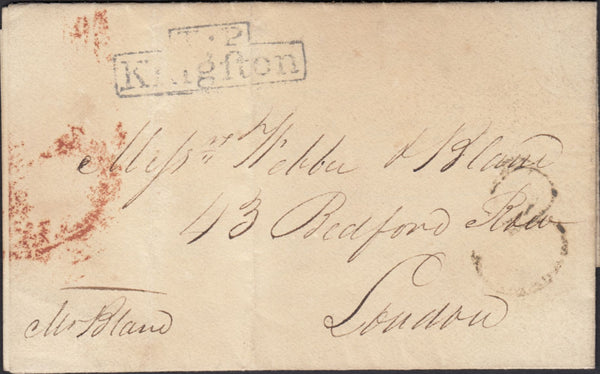 T.P
Kingston
Messrs Webbe & Bland
43 Bedford Row
London
Mr Bland